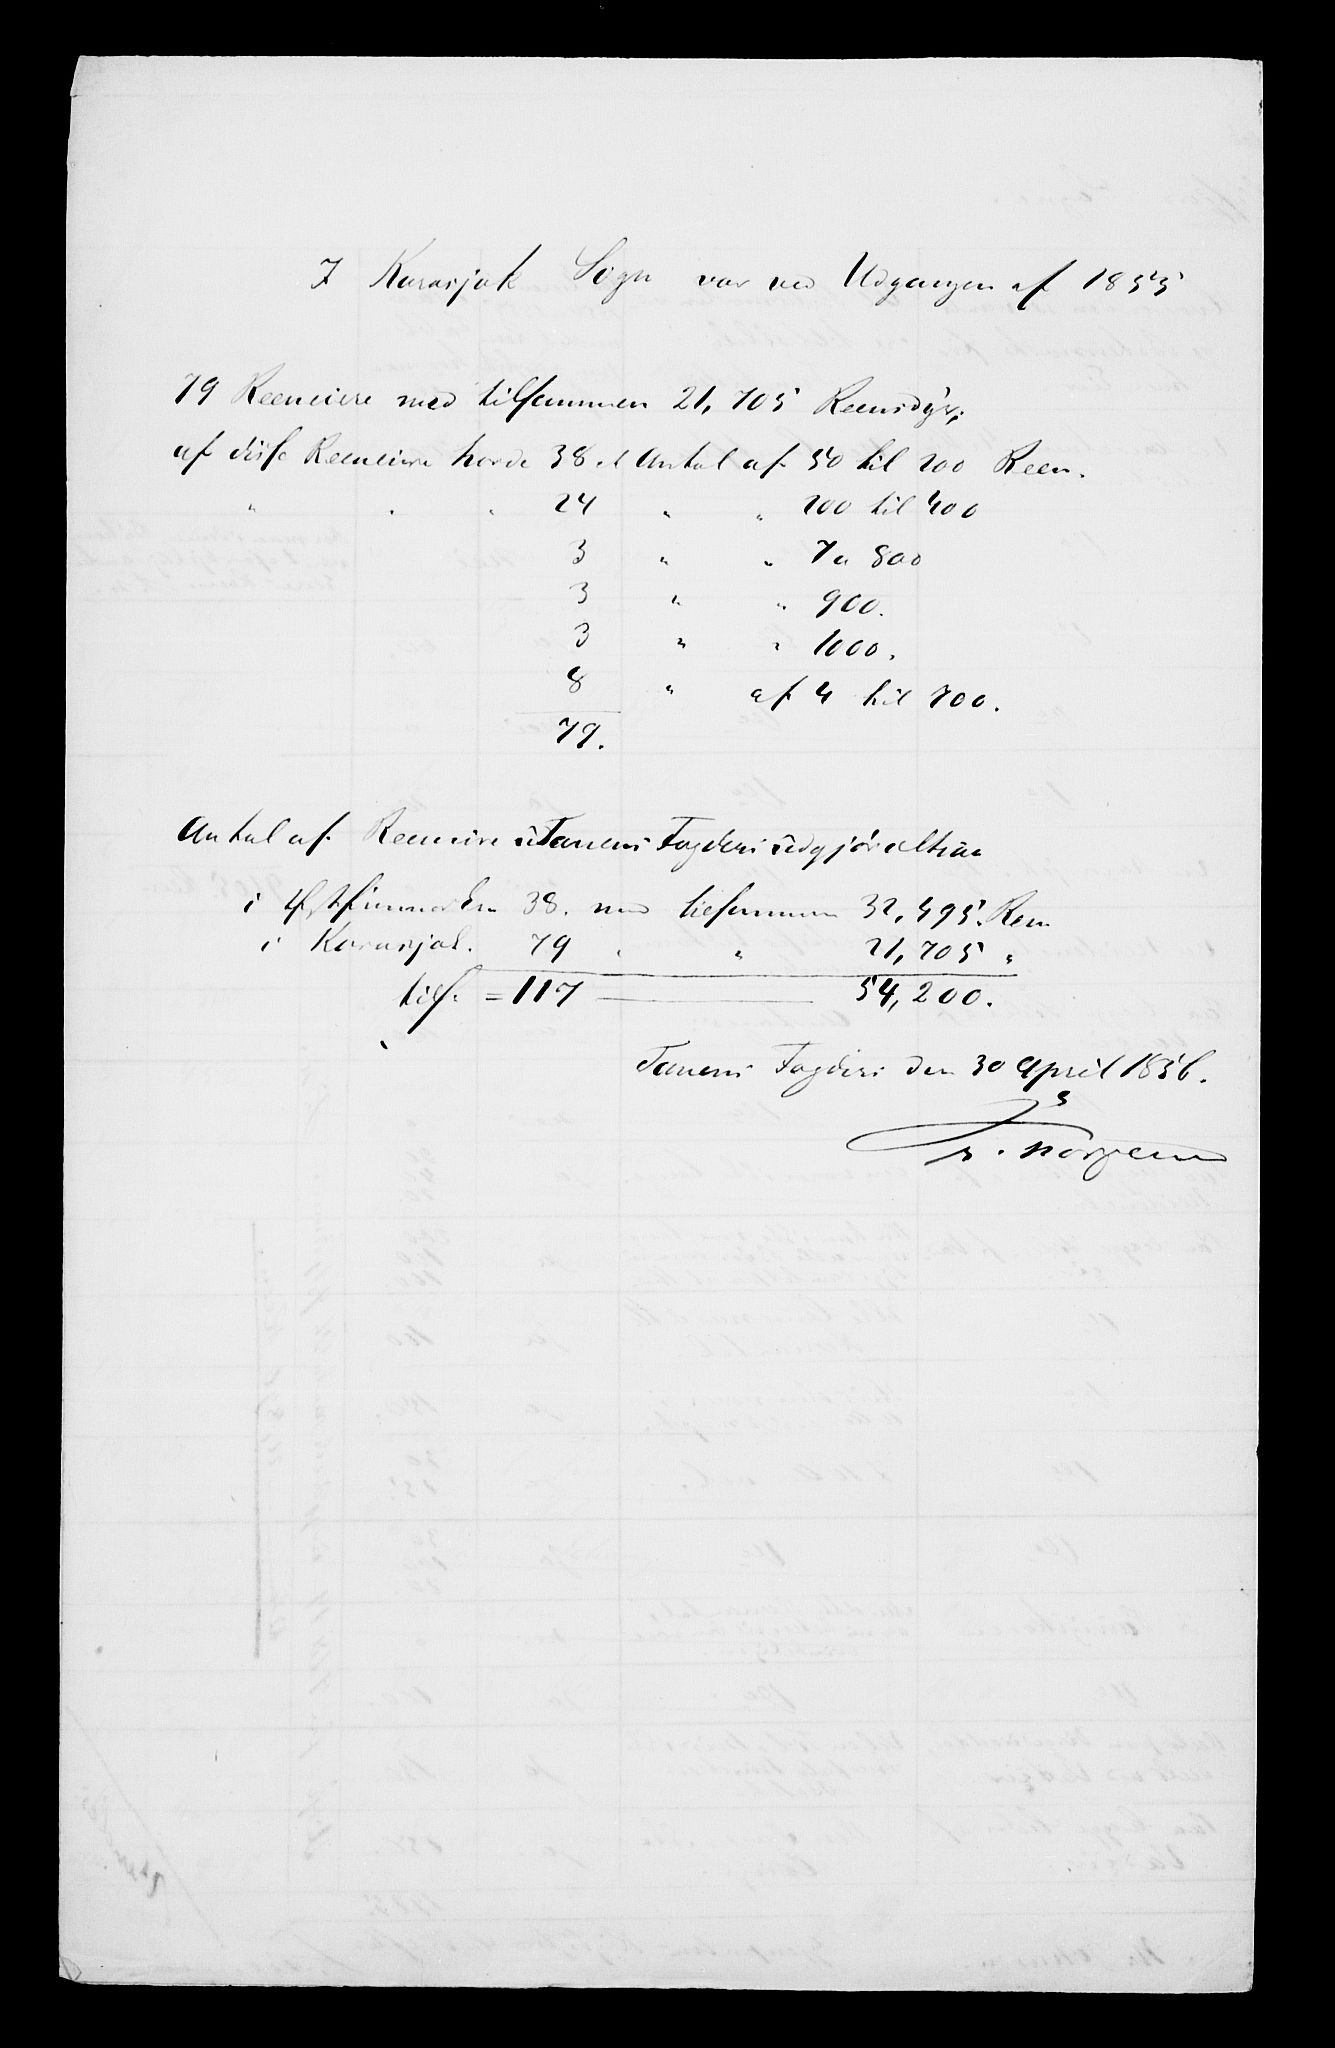 I Karasjok Sogn var ved Udgangen af 1855
79 Reeneiere med tilsammen 21,705 Reensdyr;
af disse Reeneiere havde 38 et Antal af 50 til 200 Reen.
" " " 24 " " 200 til 400
3 " " 7 a 800
3 " " 900.
3 " " 1000.
8 " af 4 til 700.
79.
Antal af Reeneiere i Tanens Fogderi udgjør altsaa
i Østfinmarken 38. med tilsammen 32,495. Reen
i Karasjok. 79 " " 21,705 "
tils. = 117 — 54,200.
Tanens Fogderi den 30 April 1856.